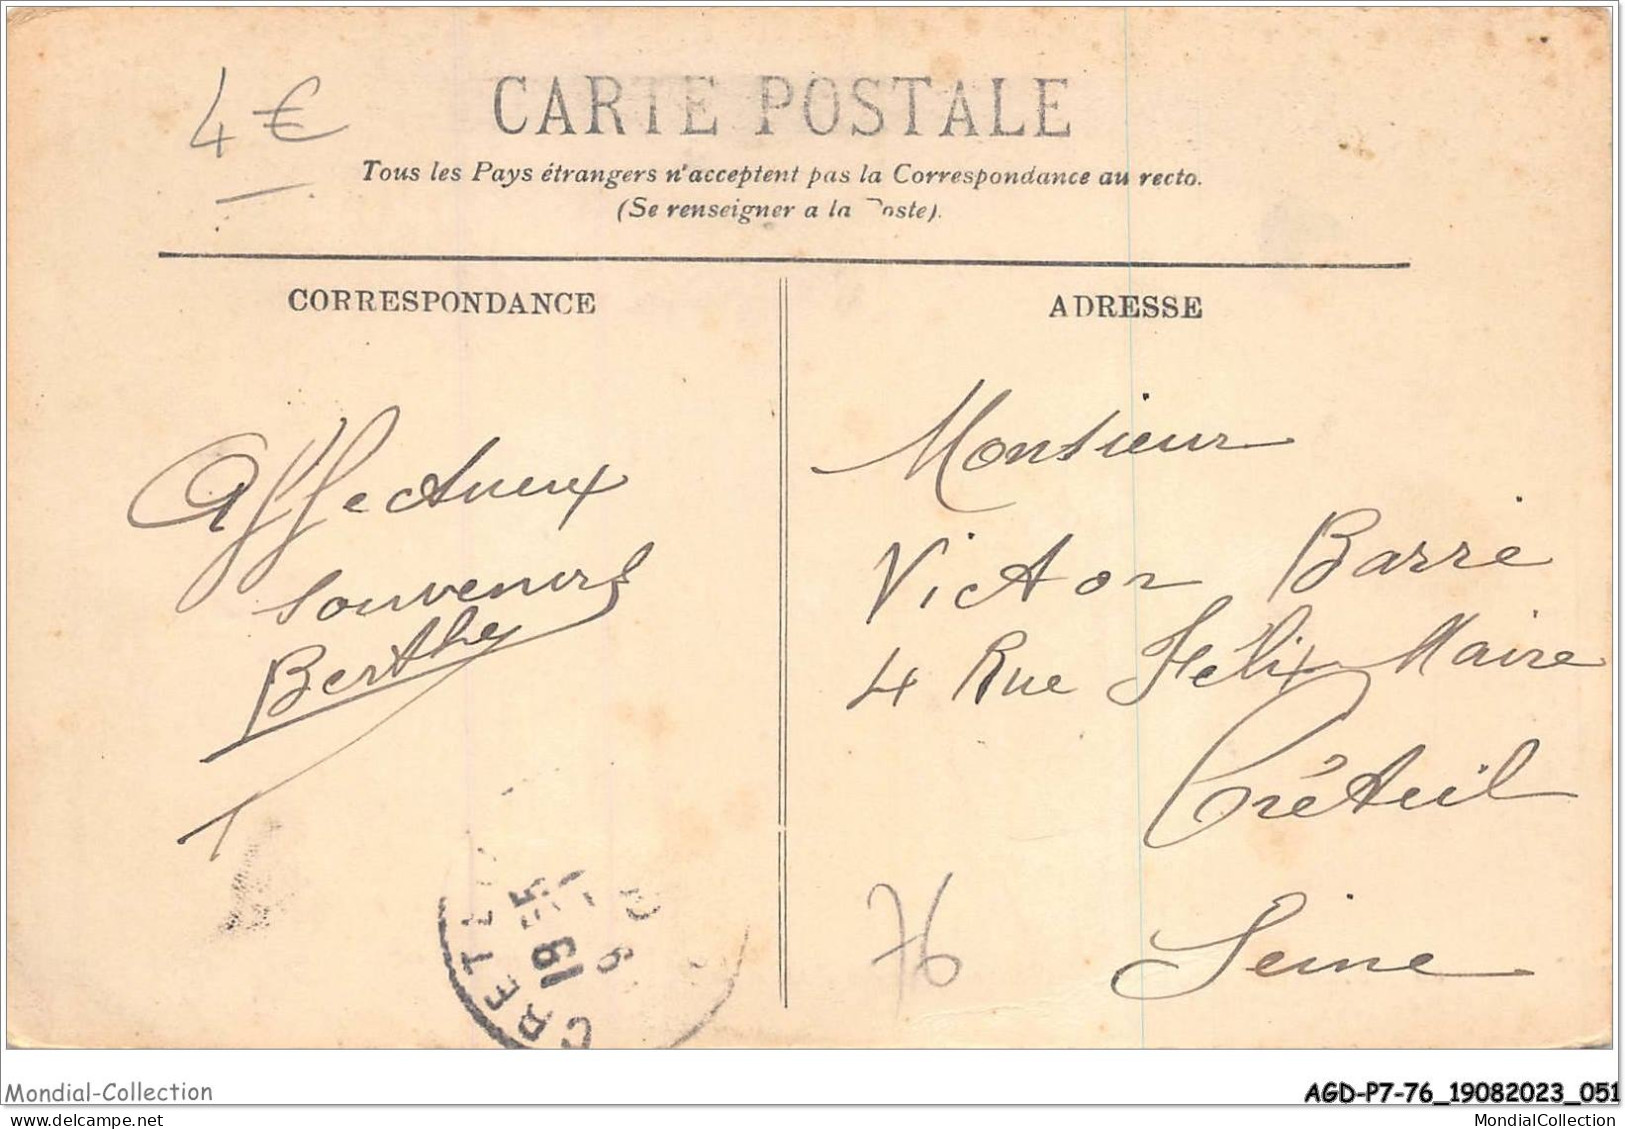 4€
CARTE POSTALE
Tous les Pays étrangers n'acceptent pas la Correspondance au recto.
(Se renseigner a la Poste).
CORRESPONDANCE
Affectueux
souvenirs
Berthe
ADRESSE
Monsieur
Victor Barré
4 Rue Félix Maire
Créteil
Seine
76
CRET
19
Mondial-Collection
AGD-P7-76_19082023_051
MondialCollection